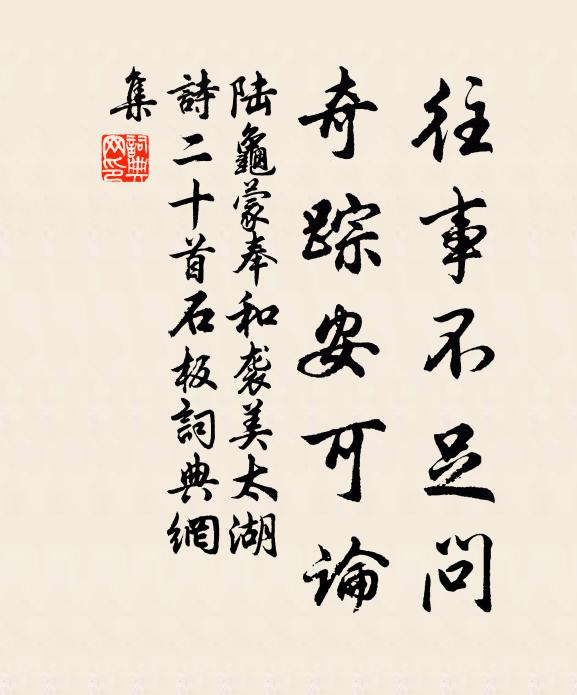 往事不足問
奇踪安可論
陆龜蒙奉和袭美太湖
詩二十首石板詞典網
集
詞典网印